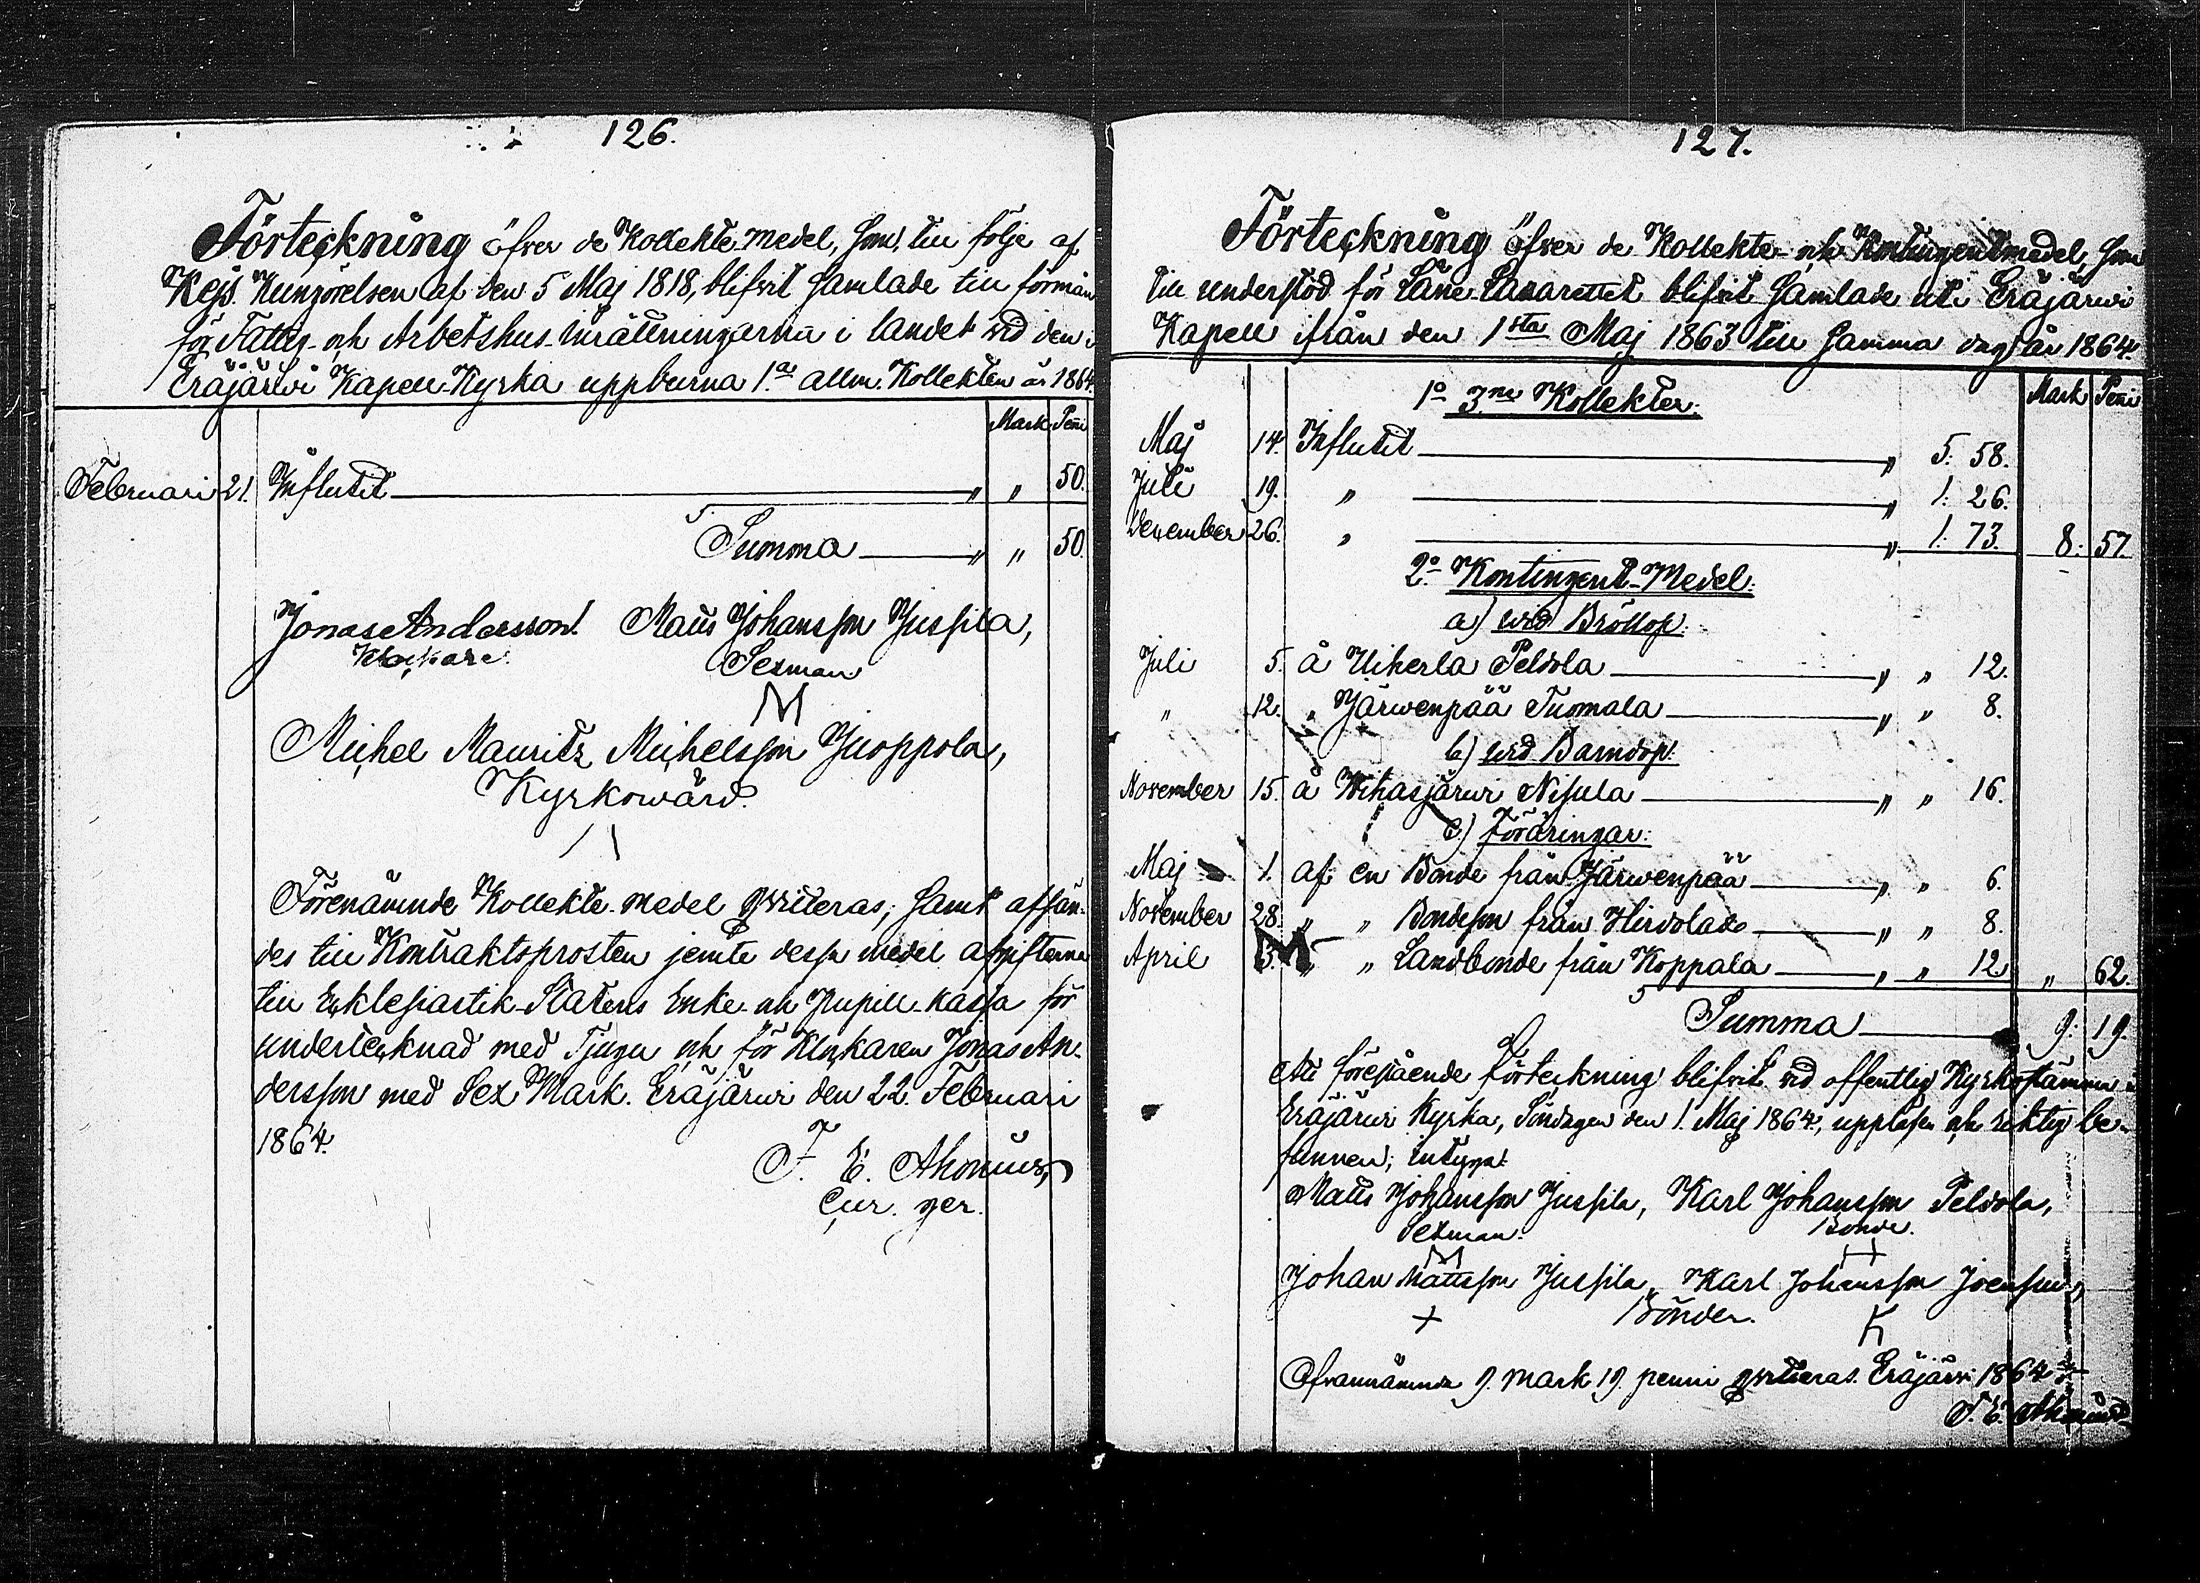 126.
Förteckning öfver de Kollekte medel, som, till följe af
Kejs. Kungörelsen af den 5 Maj 1818, blifvit samlade till förmån
för Fattig- och Arbetshus-inrättningarna i landet vid den i
Eräjärvi Kapell-Kyrka uppburna 1.a allm. Kollekten år 1864.
Mark Penni
Februari 21. Influtit „ „ 50.
Summa „ „ 50.
Jonas Andersson. Matts Johansson Jussila,
Klockare. Sexman.
Michel Mauritz Michelsson Juoppola,
Kyrkowärd.
Förenämnde Kollekte-medel qvitteras, samt afsän-
des till Kontraktsprosten jemte dessa medel afgifterna
till Ecklesiastik-Statens Enke- och Pupill-kassa för
undertecknad med Tjugu och för Klockaren Jonas An-
dersson med Sex Mark. Eräjärwi den 22. Februari
1864.
F. E. Ahonius,
Cur. ger.
127.
Förteckning öfver de Kollekte- och Kontingentmedel, som
till understöd för Läne Lazarettet blifvit samlade uti Eräjärwi
Kapell ifrån den 1sta Maj 1863 till samma dag år 1864.
Mark Penni
1o 3ne Kollekter.
Maj 14. Influtit „ 5. 58.
Juli 19. „ „ 1. 26.
December 26. „ „ 1. 73. 8. 57.
2o Kontingent-Medel.
a) wid Bröllop.
Juli 5. å Uiherla Peldola „ „ 12.
„ 12. „ Järwenpää Tuomala „ „ 8.
b) wid Barndop.
November 15. å Wihasjärwi Nisula „ „ 16.
c) Föräringar.
Maj 1. af en Bonde från Järwenpää „ „ 6.
November 28. „ „ Bondeson från Hirvola „ „ 8.
April 3. „ „ Landbonde från Koppala „ „ 12. „ 62.
Summa 9. 19.
Att förestående Förteckning blifvit vid offentlig Kyrkostämma i
Eräjärwi Kyrka, Söndagen den 1. Maj 1864, uppläsen och riktig be-
funnen; intyga:
Matts Johansson Jussila, Karl Johansson Peldola,
Sexman. Bonde.
Johan Mattsson Jussila, Karl Johansson Joensuu,
Bönder.
Ofvannämnda 9 mark 19 penni qvitteras. Eräjärwi 1864
F. E. Ahonius